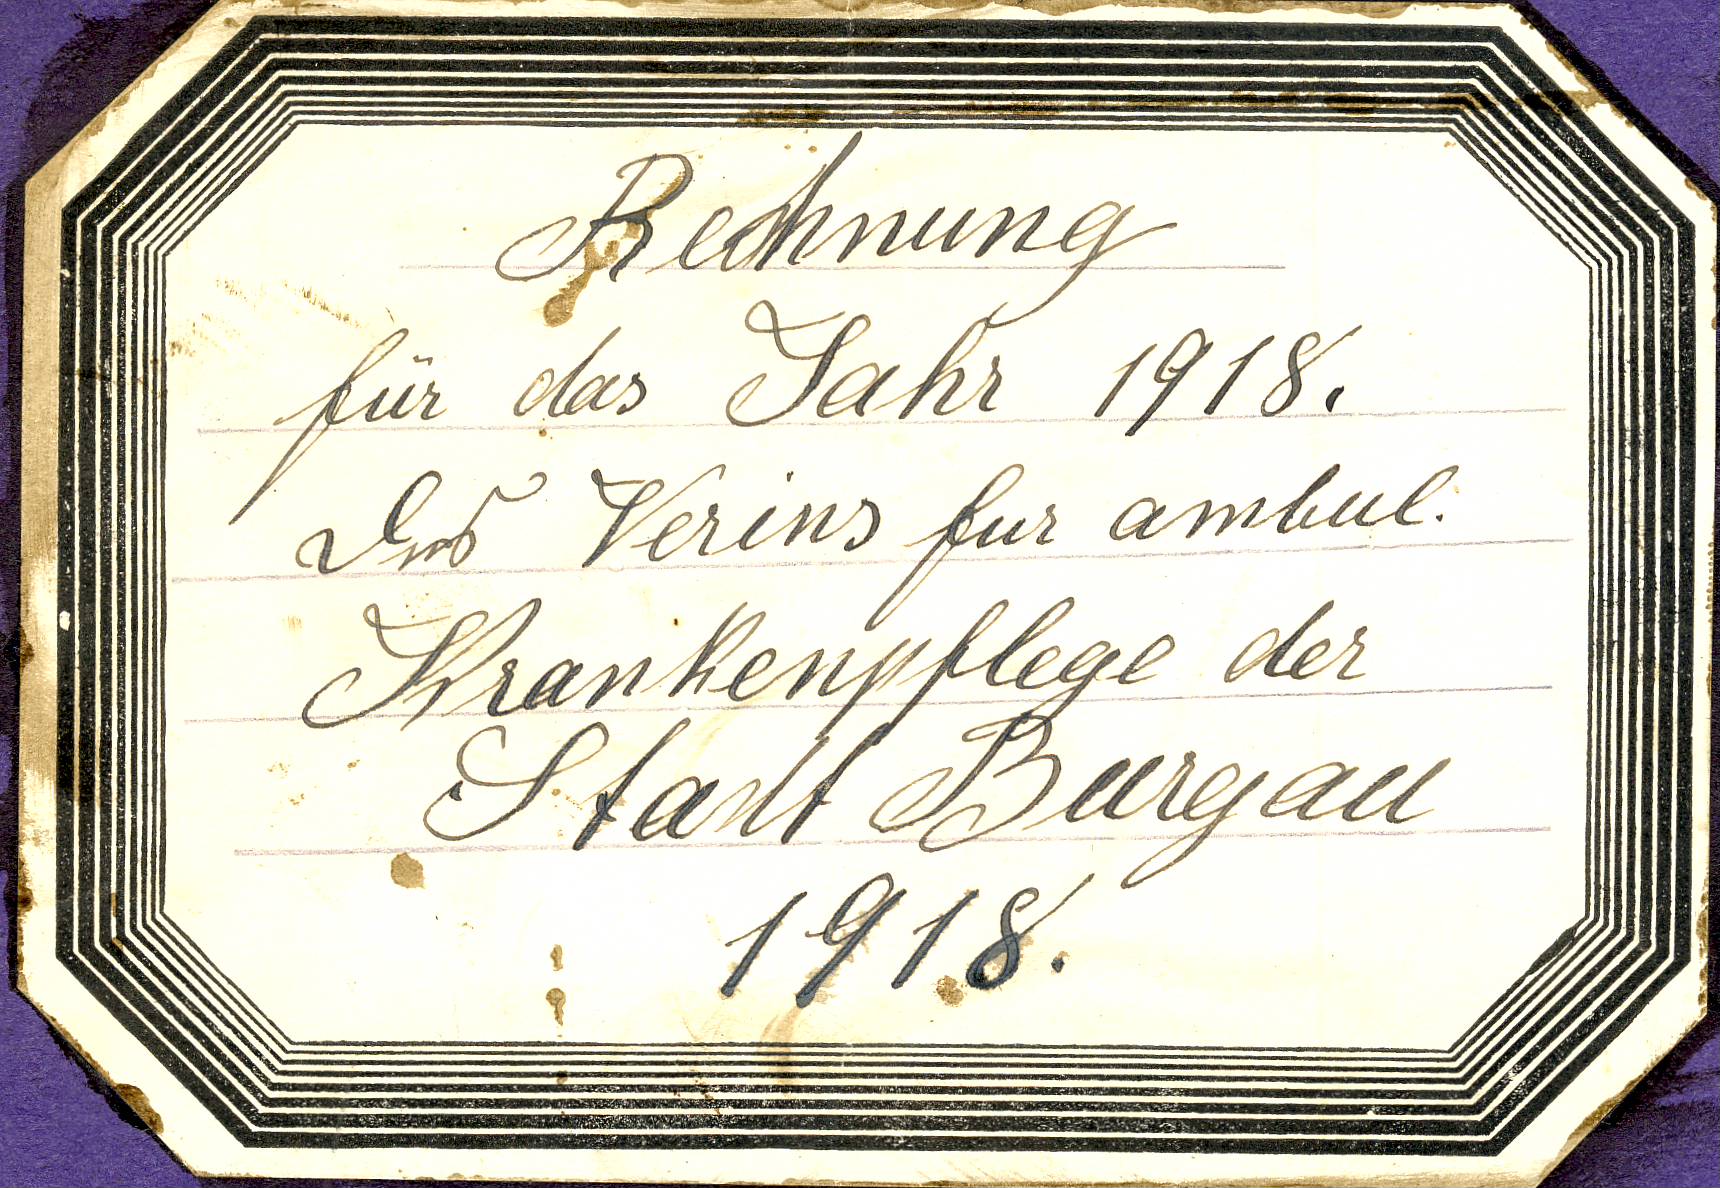 Rechnung
für das Jahr 1918.
Des Verins fur ambul.
Krankenpflege der
Stadt Burgau
1918.